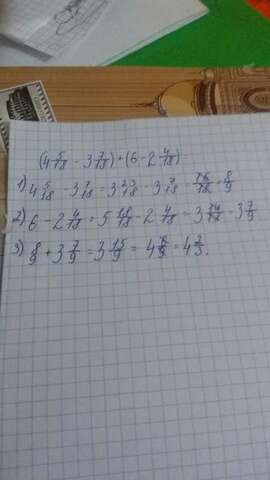 (4 5/18 - 3 7/18) + (6 - 2 4/18) =
1) 4 5/18 - 3 7/18 = 3 23/18 - 3 7/18 = 16/18 = 8/9
2) 6 - 2 4/18 = 5 18/18 - 2 4/18 = 3 14/18 = 3 7/9
3) 8/9 + 3 7/9 = 3 15/9 = 4 6/9 = 4 2/3.